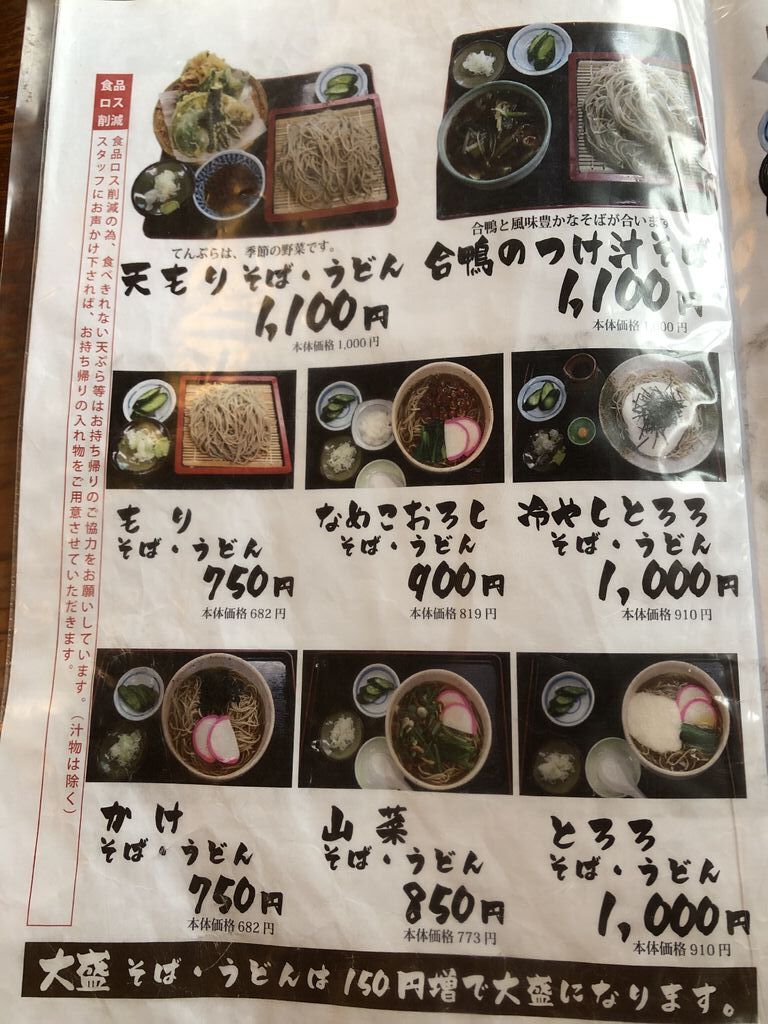 食品
ロス
削減
食品ロス削減の為、食べきれない天ぷら等はお持ち帰りのご協力をお願いしています。（汁物は除く）
スタッフにお声かけ下されば、お持ち帰りの入れ物をご用意させていただきます。
てんぷらは、季節の野菜です。
天もりそば・うどん
1,100円
本体価格1,000円
合鴨と風味豊かなそばが合います
合鴨のつけ汁そば
1,100円
本体価格1,000円
もり
そば・うどん
750円
本体価格682円
なめこおろし
そば・うどん
900円
本体価格819円
冷やしとろろ
そば・うどん
1,000円
本体価格910円
かけ
そば・うどん
750円
本体価格682円
山菜
そば・うどん
850円
本体価格773円
とろろ
そば・うどん
1,000円
本体価格910円
大盛そば・うどんは150円増で大盛になります。